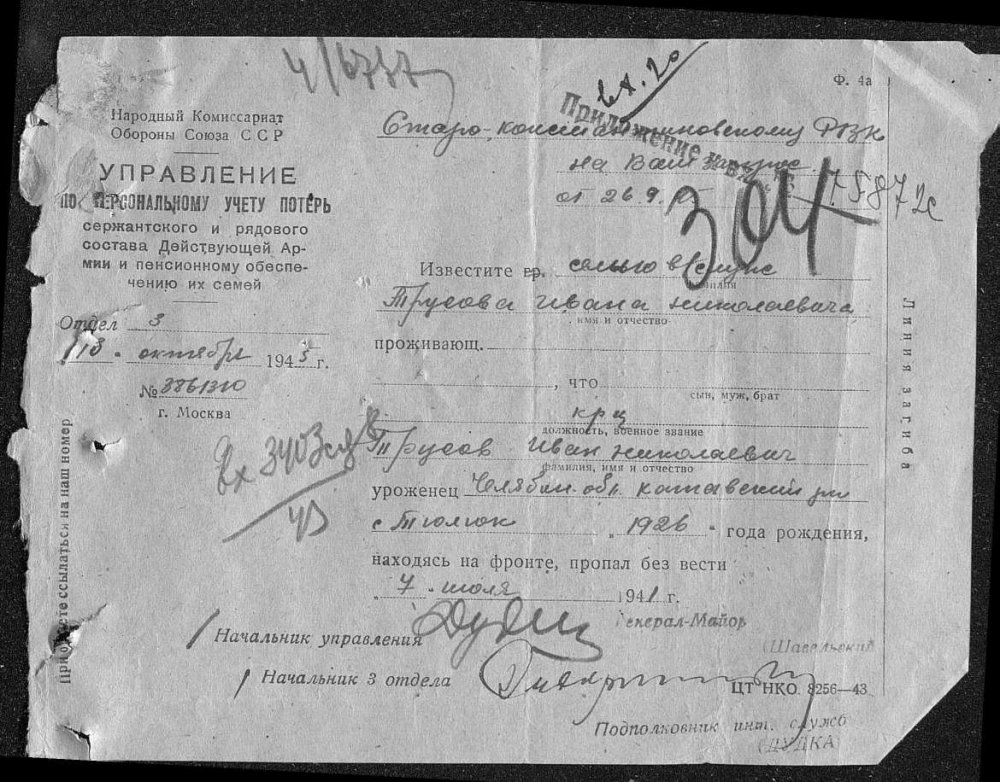 4/6737
Ф. 4а
вх. 20
Приложение
304
75872с
Народный Комиссариат
Обороны Союза ССР
УПРАВЛЕНИЕ
ПО ПЕРСОНАЛЬНОМУ УЧЕТУ ПОТЕРЬ
сержантского и рядового
состава Действующей Ар-
мии и пенсионному обеспе-
чению их семей
Отдел 3
"13" октября 1945 г.
№ 3861310
г. Москва
Старо-константиновскому РВК
на Ваш
от 26.9.
Известите гр.
фамилия
Трусова Ивана Николаевича
имя и отчество
проживающ.
, что
сын, муж, брат
крц
должность, военное звание
Трусов Иван Николаевич
фамилия, имя и отчество
уроженец Челябин. обл. Катавский рн
с Тюлюк "1926" года рождения,
находясь на фронте, пропал без вести
"7" июля 1941 г.
Генерал-Майор
Начальник управления
(Шавельский)
Начальник 3 отдела
ЦТ НКО. 8256—43
Подполковник инт. служб
(ДУДКА)
Линия загиба
При ответе ссылаться на наш номер